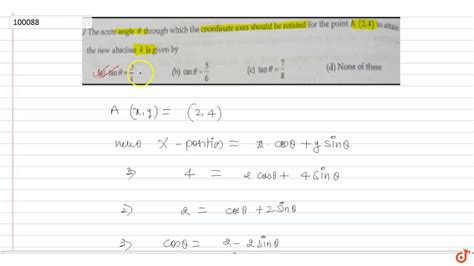 100088
The acute angle θ through which the coordinate axes should be rotated for the point A (2,4) to attain
the new abscissa 4 is given by
tan θ = (b) tan θ = 5/6 (c) tan θ = 7/8 (d) None of these
A (x,y) = (2,4)
new X - position = x cosθ + y sinθ
⇒ 4 = 2 cosθ + 4 sinθ
⇒ 2 = cosθ + 2 sinθ
⇒ cosθ = 2 - 2 sinθ